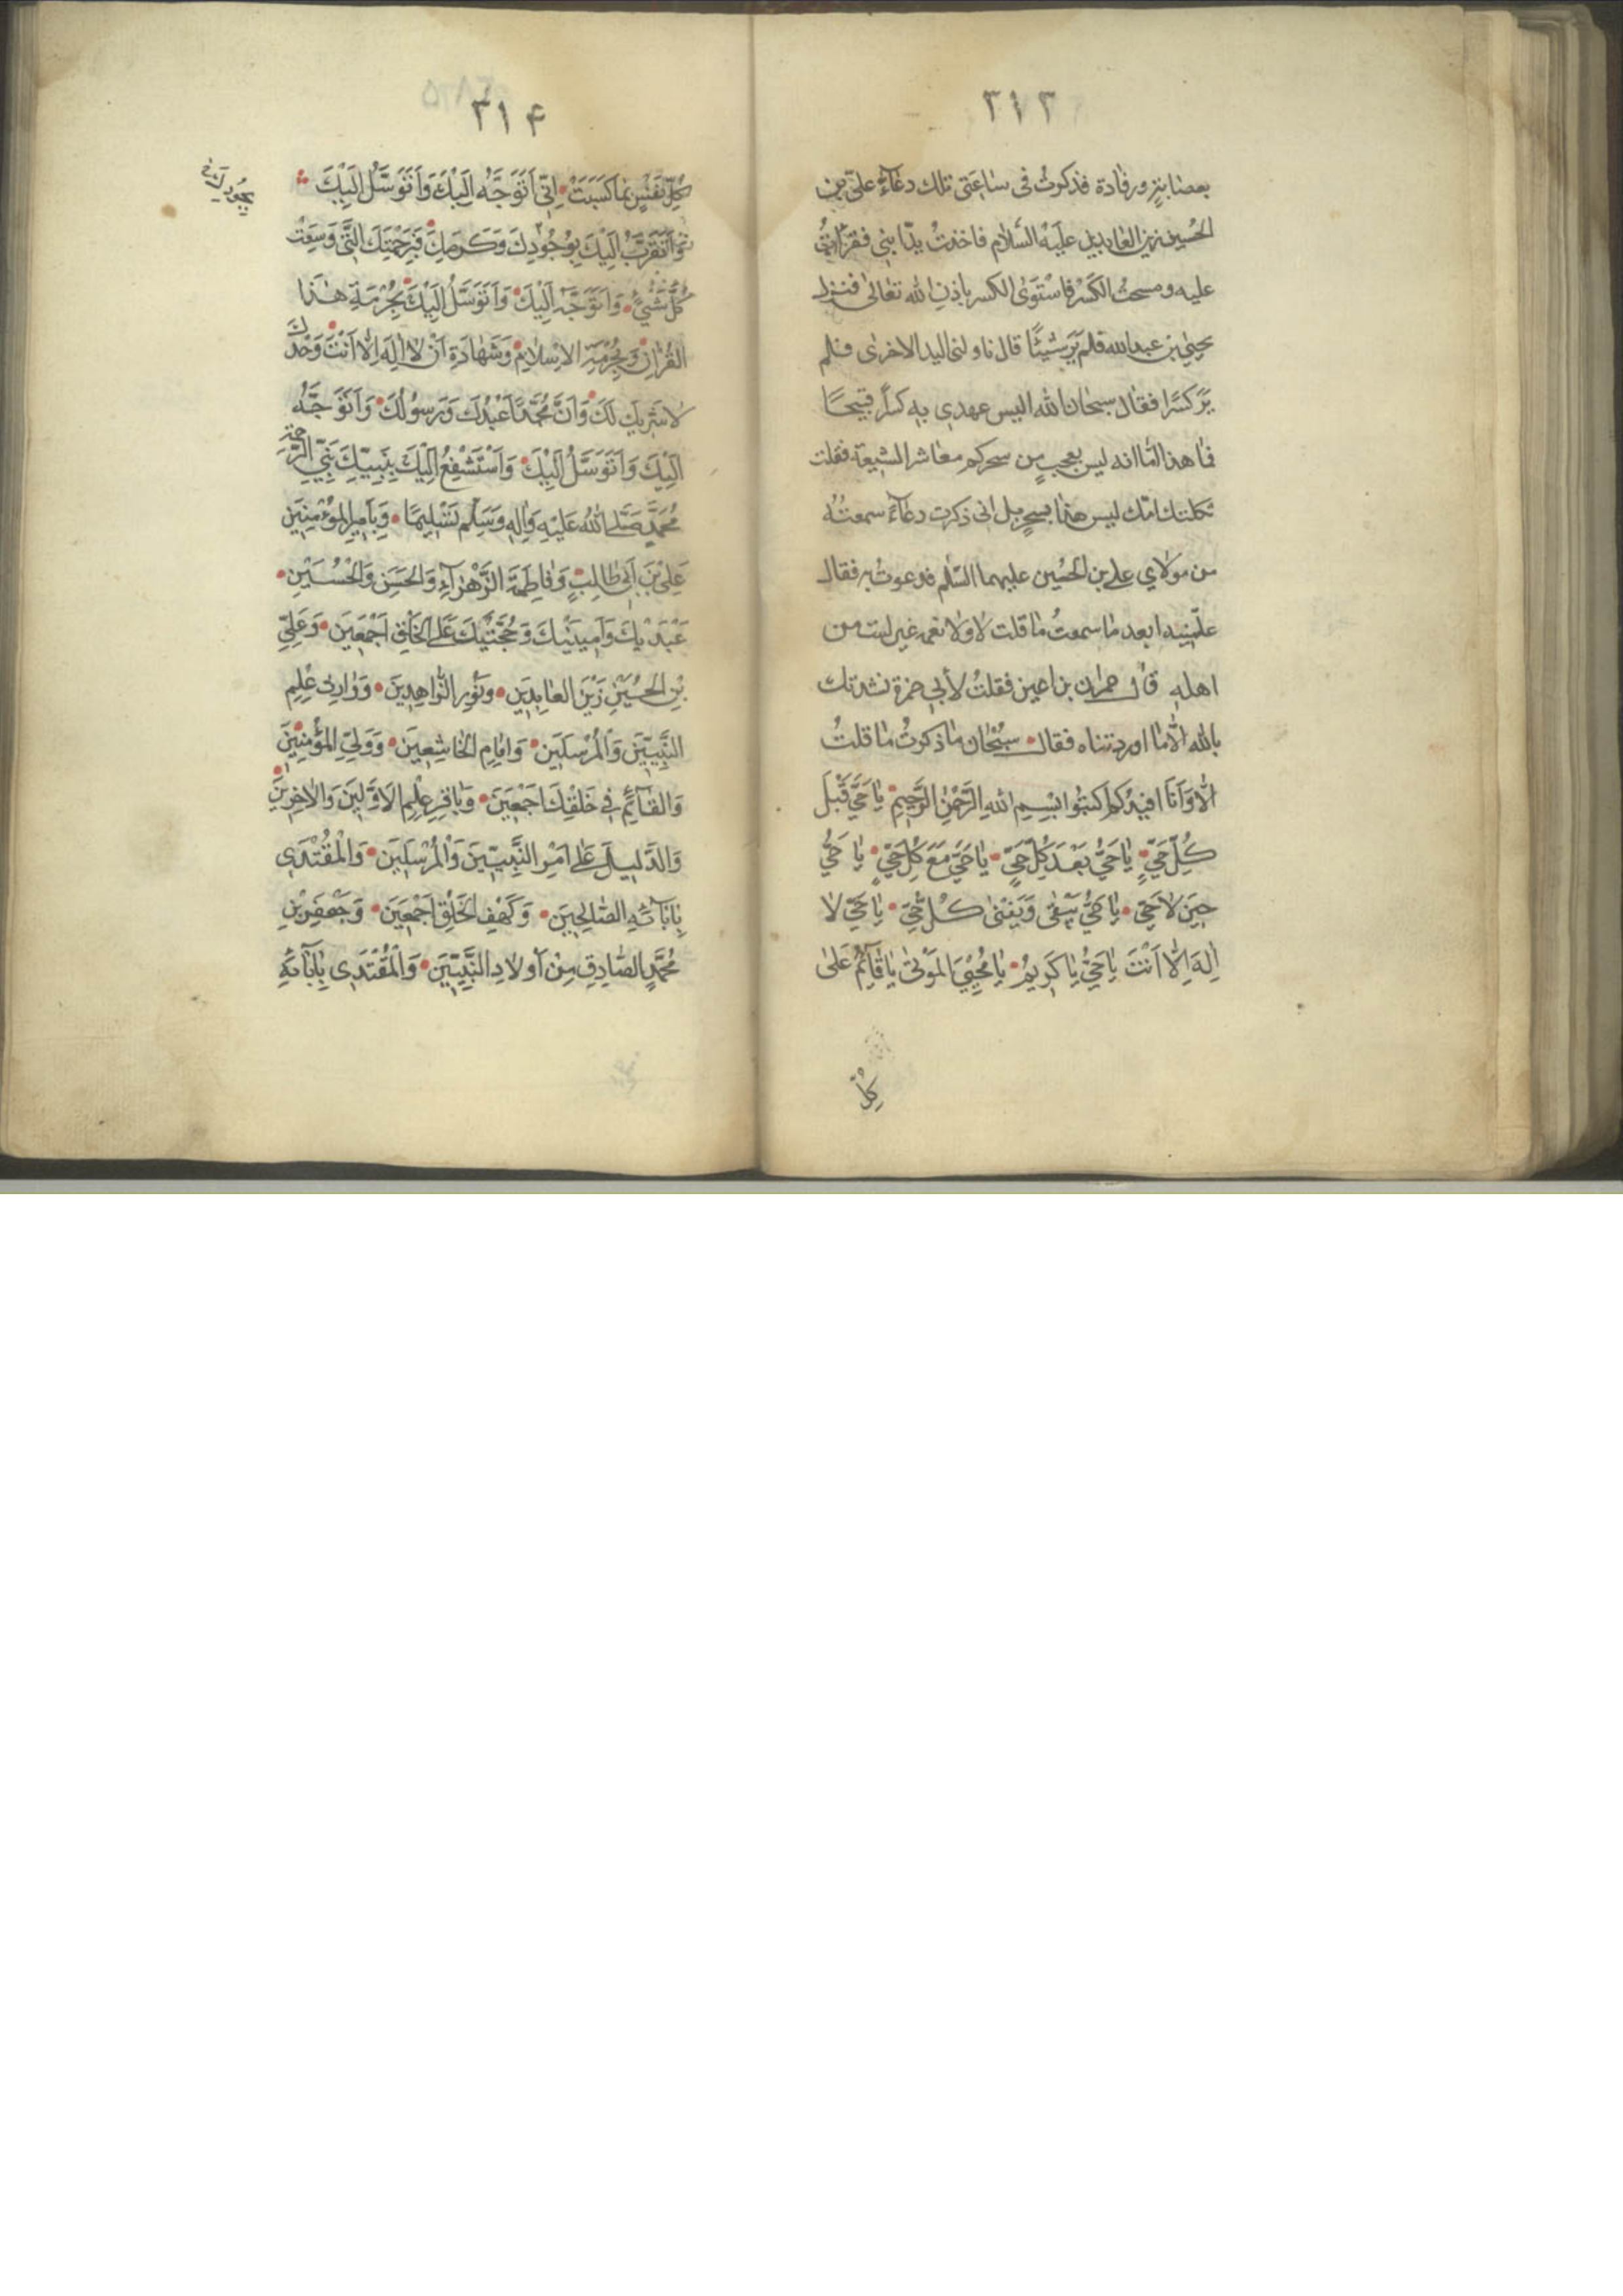 ٣١٣
بعصابة ورفادة فذكرتُ فى ساعتى تلك دعآءَ علىّ بن
الحُسين زين العابدين عليه السّلام فاخذتُ يدَ ابنى فقرأتُ
عليه ومسحتُ الكَسْر فاسْتَوىٰ الكسر باذن الله تعٰالىٰ فنزل
يحيىٰ بن عبدالله فلم يَرَ شيئًا قال ناولنى اليد الاخرىٰ فلم
يَرَ كسرًا فقال سبحان الله اليس عهدي به كسرًا قبيحًا
فما هذا امّا انه ليس بعجبٍ من سحركم معاشر الشيعة فقلت
ثكلتك امّك ليس هذا بسحرٍ بل انى ذكرت دعآءً سمعتُه
من مولاي على بن الحُسين عليهما السّلم فدعوتُ به فقال
علّمنيه ابعد ما سمعتُ ما قلت لا ولا نعمة عين لست من
اهله قال حمران بن اعين فقلتُ لأبي حمزة نشدتك
بالله الّا ما اوردتناه فقال سبْحٰان ما ذكرتُ ما قلتُ
الّا وَاَنَا افيدُكم اكتبُوا بِسْمِ اللهِ الرَّحْمٰنِ الرَّحيمِ يٰا حَيُّ قَبْلَ
كُلِّ حَيٍّ يٰا حَيُّ بَعْدَ كُلِّ حَيٍّ يٰا حَيُّ مَعَ كُلِّ حَيٍّ يٰا حَيُّ
حينَ لٰا حَيَّ يٰا حَيُّ يَبْقىٰ وَيَفْنىٰ كُلُّ حَيٍّ يٰا حَيُّ لا
اِلٰهَ اِلّٰا اَنْتَ يٰا حَيُّ يٰا كَريمُ يٰا مُحْيِيَ المَوْتىٰ يٰا قٰآئِمُ عَلىٰ
كُلِّ
٣١۴
كُلِّ نَفْسٍ بِمٰا كَسَبَتْ اِنّى اَتَوَجَّهُ اِلَيْكَ وَاَتَوَسَّلُ اِلَيْكَ
وَاَتَقَرَّبُ اِلَيْكَ بِجُودِكَ وَكَرَمِكَ وَبِرَحْمَتِكَ الَّتى وَسِعَتْ
كُلَّ شَيْءٍ وَاَتَوَجَّهُ اِلَيْكَ وَاَتَوَسَّلُ اِلَيْكَ بِحُرْمَةِ هٰذَا
القُرْاٰنِ وَبِحُرْمَةِ الاِسْلٰامِ وَشَهٰادَةِ اَنْ لٰا اِلٰهَ اِلّٰا اَنْتَ وَحْدَكَ
لٰا شَريكَ لَكَ وَاَنَّ مُحَمَّدًا عَبْدُكَ وَرَسُولُكَ وَاَتَوَجَّهُ
اِلَيْكَ وَاَتَوَسَّلُ اِلَيْكَ وَاَسْتَشْفِعُ اِلَيْكَ بِنَبِيِّكَ نَبِيِّ الرَّحْمَةِ
مُحَمَّدٍ صَلَّى اللهُ عَلَيْهِ وَاٰلِهِ وَسَلَّمَ تَسْليمًا وَبِاَميرِ المُؤْمِنينَ
عَلىِّ بْنِ اَبى طٰالِبٍ وَفٰاطِمَةَ الزَّهْرٰآءِ وَالحَسَنِ وَالْحُسَيْنِ
عَبْدَيْكَ وَاَمينَيْكَ وَحُجَّتَيْكَ عَلَى الخَلْقِ اَجْمَعينَ وَعَلِيِّ
بْنِ الحُسَيْنِ زَيْنِ العٰابِدينَ وَنُورِ الزّٰاهِدينَ وَوٰارِثِ عِلْمِ
النَّبِيّينَ وَالْمُرْسَلينَ وَاِمٰامِ الْخٰاشِعينَ وَوَلِيِّ المُؤْمِنينَ
وَالقٰآئِمِ فى خَلْقِكَ اَجْمَعينَ وَبٰاقِرِ عِلْمِ الاَوَّلينَ وَالاٰخِرينَ
وَالدَّليلِ عَلىٰ اَمْرِ النَّبِيّينَ وَالْمُرْسَلينَ وَالْمُقْتَدى
بِاٰبٰائِهِ الصّٰالِحينَ وَكَهْفِ الْخَلْقِ اَجْمَعينَ وَجَعْفَرِ بْنِ
مُحَمَّدٍ الصّٰادِقِ مِنْ اَوْلٰادِ النَّبِيّينَ وَالْمُقْتَدى بِاٰبٰآئِهِ